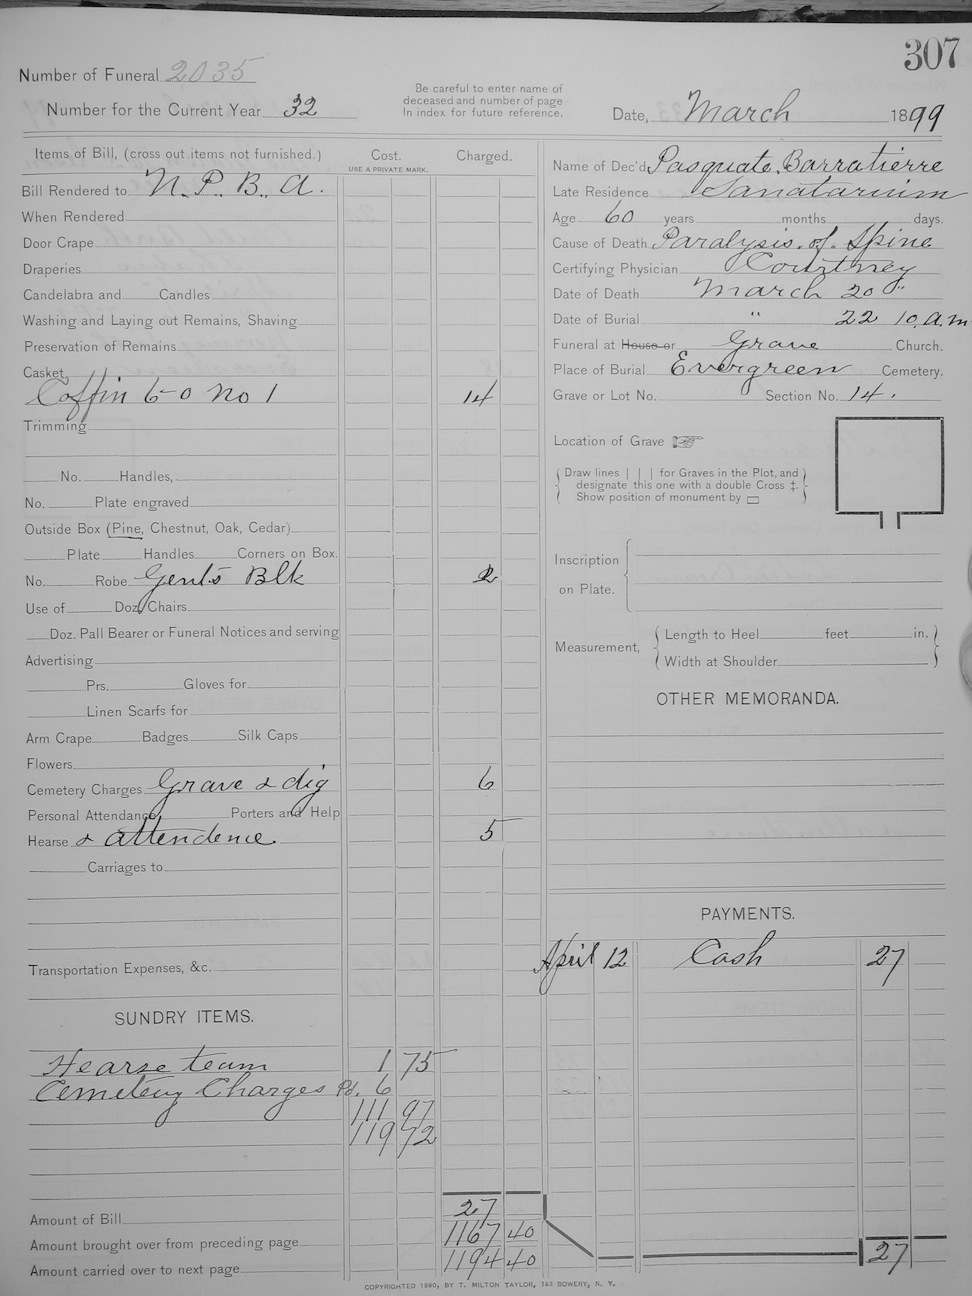 307
Number of Funeral 2035
Number for the Current Year 32
Be careful to enter name of
deceased and number of page
In index for future reference.
Date, March 1899
Items of Bill, (cross out items not furnished.) Cost. Charged.
USE A PRIVATE MARK.
Bill Rendered to N. P. B. A.
When Rendered
Door Crape
Draperies
Candelabra and Candles
Washing and Laying out Remains, Shaving
Preservation of Remains
Casket
Coffin 6-0 No 1 14
Trimming
No. Handles,
No. Plate engraved
Outside Box (Pine, Chestnut, Oak, Cedar)
Plate Handles Corners on Box.
No. Robe Gents Blk 2
Use of Doz. Chairs
Doz. Pall Bearer or Funeral Notices and serving
Advertising
Prs. Gloves for
Linen Scarfs for
Arm Crape Badges Silk Caps
Flowers
Cemetery Charges Grave & dig 6
Personal Attendance, Porters and Help
Hearse & attendence 5
Carriages to
Transportation Expenses, &c.
SUNDRY ITEMS.
Hearse team 1 75
Cemeteny Charges Pd. 6
111 97
119 72
27
Amount of Bill
Amount brought over from preceding page 1167 40
Amount carried over to next page 1194 40
Name of Dec'd Pasquate Barratierre
Late Residence Sanatarium
Age 60 years months days.
Cause of Death Paralysis of Spine
Certifying Physician Courtney
Date of Death March 20"
Date of Burial " 22 10 a.m
Funeral at House or Grave Church.
Place of Burial Evergreen Cemetery.
Grave or Lot No. Section No. 14.
Location of Grave ☞
Draw lines | | | for Graves in the Plot, and
designate this one with a double Cross ‡.
Show position of monument by ▭
Inscription
on Plate.
Measurement,
Length to Heel feet in.
Width at Shoulder
OTHER MEMORANDA.
PAYMENTS.
April 12 Cash 27
27
COPYRIGHTED 1880, BY T. MILTON TAYLOR, 163 BOWERY, N. Y.